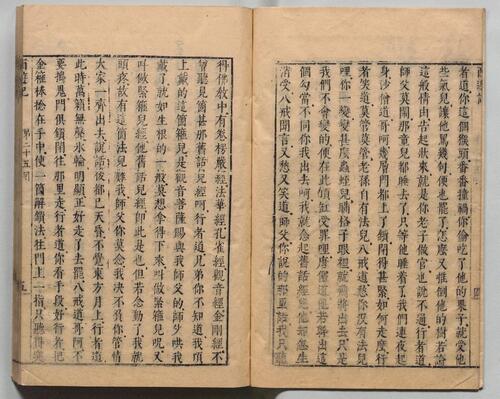 西遊記
者道你這個猴頭番番撞禍你偷吃了他的果子就受他
些氣兒讓他罵幾句便也罷了怎麼又推倒他的樹若論
這般情由告起狀來就是你老子做官也說不通行者道
師父莫鬧那童兒都睡去了只等他睡着了我們連夜起
身沙僧道哥呵幾層門都上了鎖閉得甚緊如何走麼行
者笑道莫管莫管老孫自有法兒八戒道愁你沒有法兒
哩你一變變甚麼蟲蛭兒瞞格子眼裡就飛將出去只是
我們不會變的便在此頂缸受罪哩唐僧道他若幹出這
個勾當不同你我出去呵我就念起舊話經兒他却怎生
消受八戒聞言又愁又笑道師父你說的那裏話我只聽
得佛教中有卷楞嚴經法華經孔雀經觀音經金剛經不
曾聽見箇甚那舊話兒經呵行者道兄弟你不知道我頂
上戴的這箇箍兒是觀音菩薩賜與我師父的師父哄我
戴了就如生根的一般莫想拿得下來叫做緊箍兒呪又
叫做緊箍兒經他舊話兒經即此是也但若念動了我就
頭疼故有這箇法兒難我師父你莫念我決不負你管情
大家一齊出去說話後都已天昏不覺東方月上行者道
此時萬籟無聲氷輪明顯正好走了去罷八戒道哥呵不
要搗鬼門俱鎖閉往那里走行者道你看手段好行者把
金箍棒捻在手中使一箇解鎖法往門上一指只聽得突
西遊記　第二十五回　五